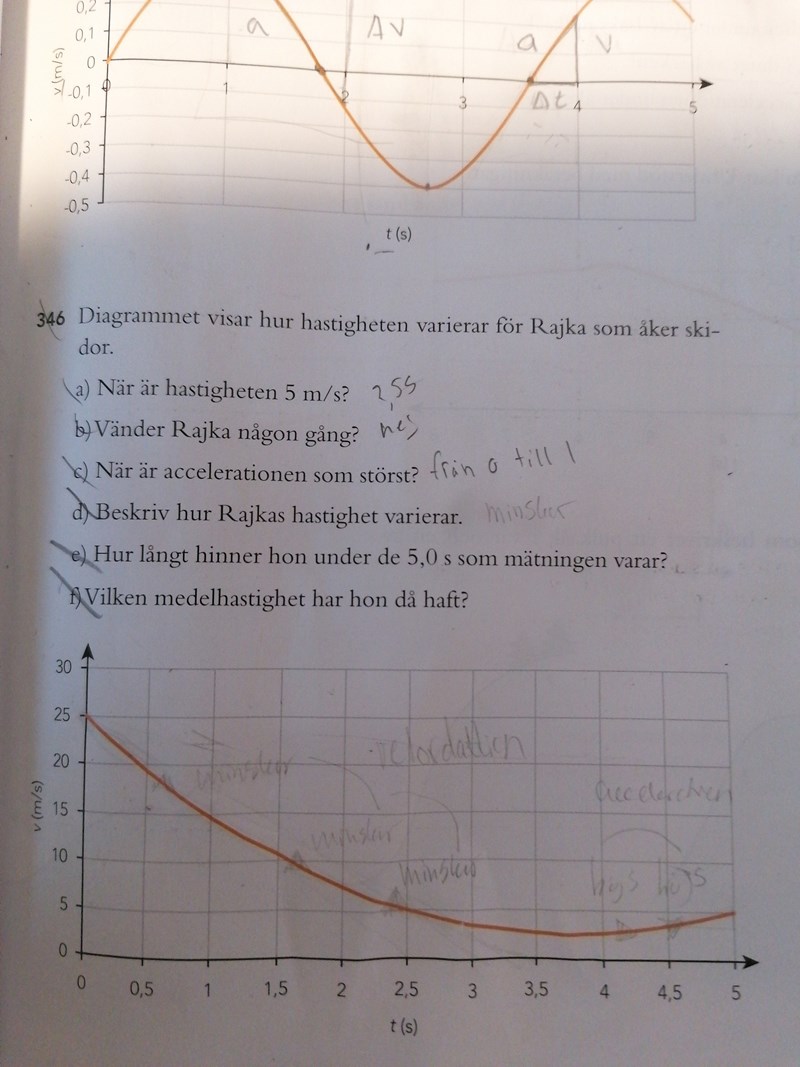 0,2
0,1
0
-0,1
-0,2
-0,3
-0,4
-0,5
v (m/s)
a
Δv
a
v
Δt
0
1
2
3
4
5
t (s)
346 Diagrammet visar hur hastigheten varierar för Rajka som åker ski-
dor.
a) När är hastigheten 5 m/s? 2,5s
b) Vänder Rajka någon gång? nej
c) När är accelerationen som störst? från 0 till 1
d) Beskriv hur Rajkas hastighet varierar. minsker
e) Hur långt hinner hon under de 5,0 s som mätningen varar?
f) Vilken medelhastighet har hon då haft?
30
25
20
15
10
5
0
v (m/s)
minsker
minsker
0
0,5
1
1,5
2
2,5
3
3,5
4
4,5
5
t (s)